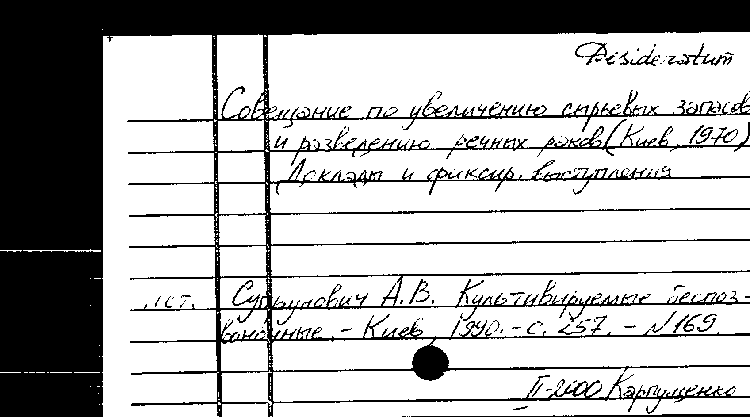 Desideratum
Совещание по увеличению сырьевых запасов
и разведению речных раков (Киев, 1970)
Доклады и фиксир. выступления
ист. Супрунович А.В. Культивируемые беспоз-
воночные. - Киев, 1990. - с. 257. - №169.
II-2000 Карпущенко